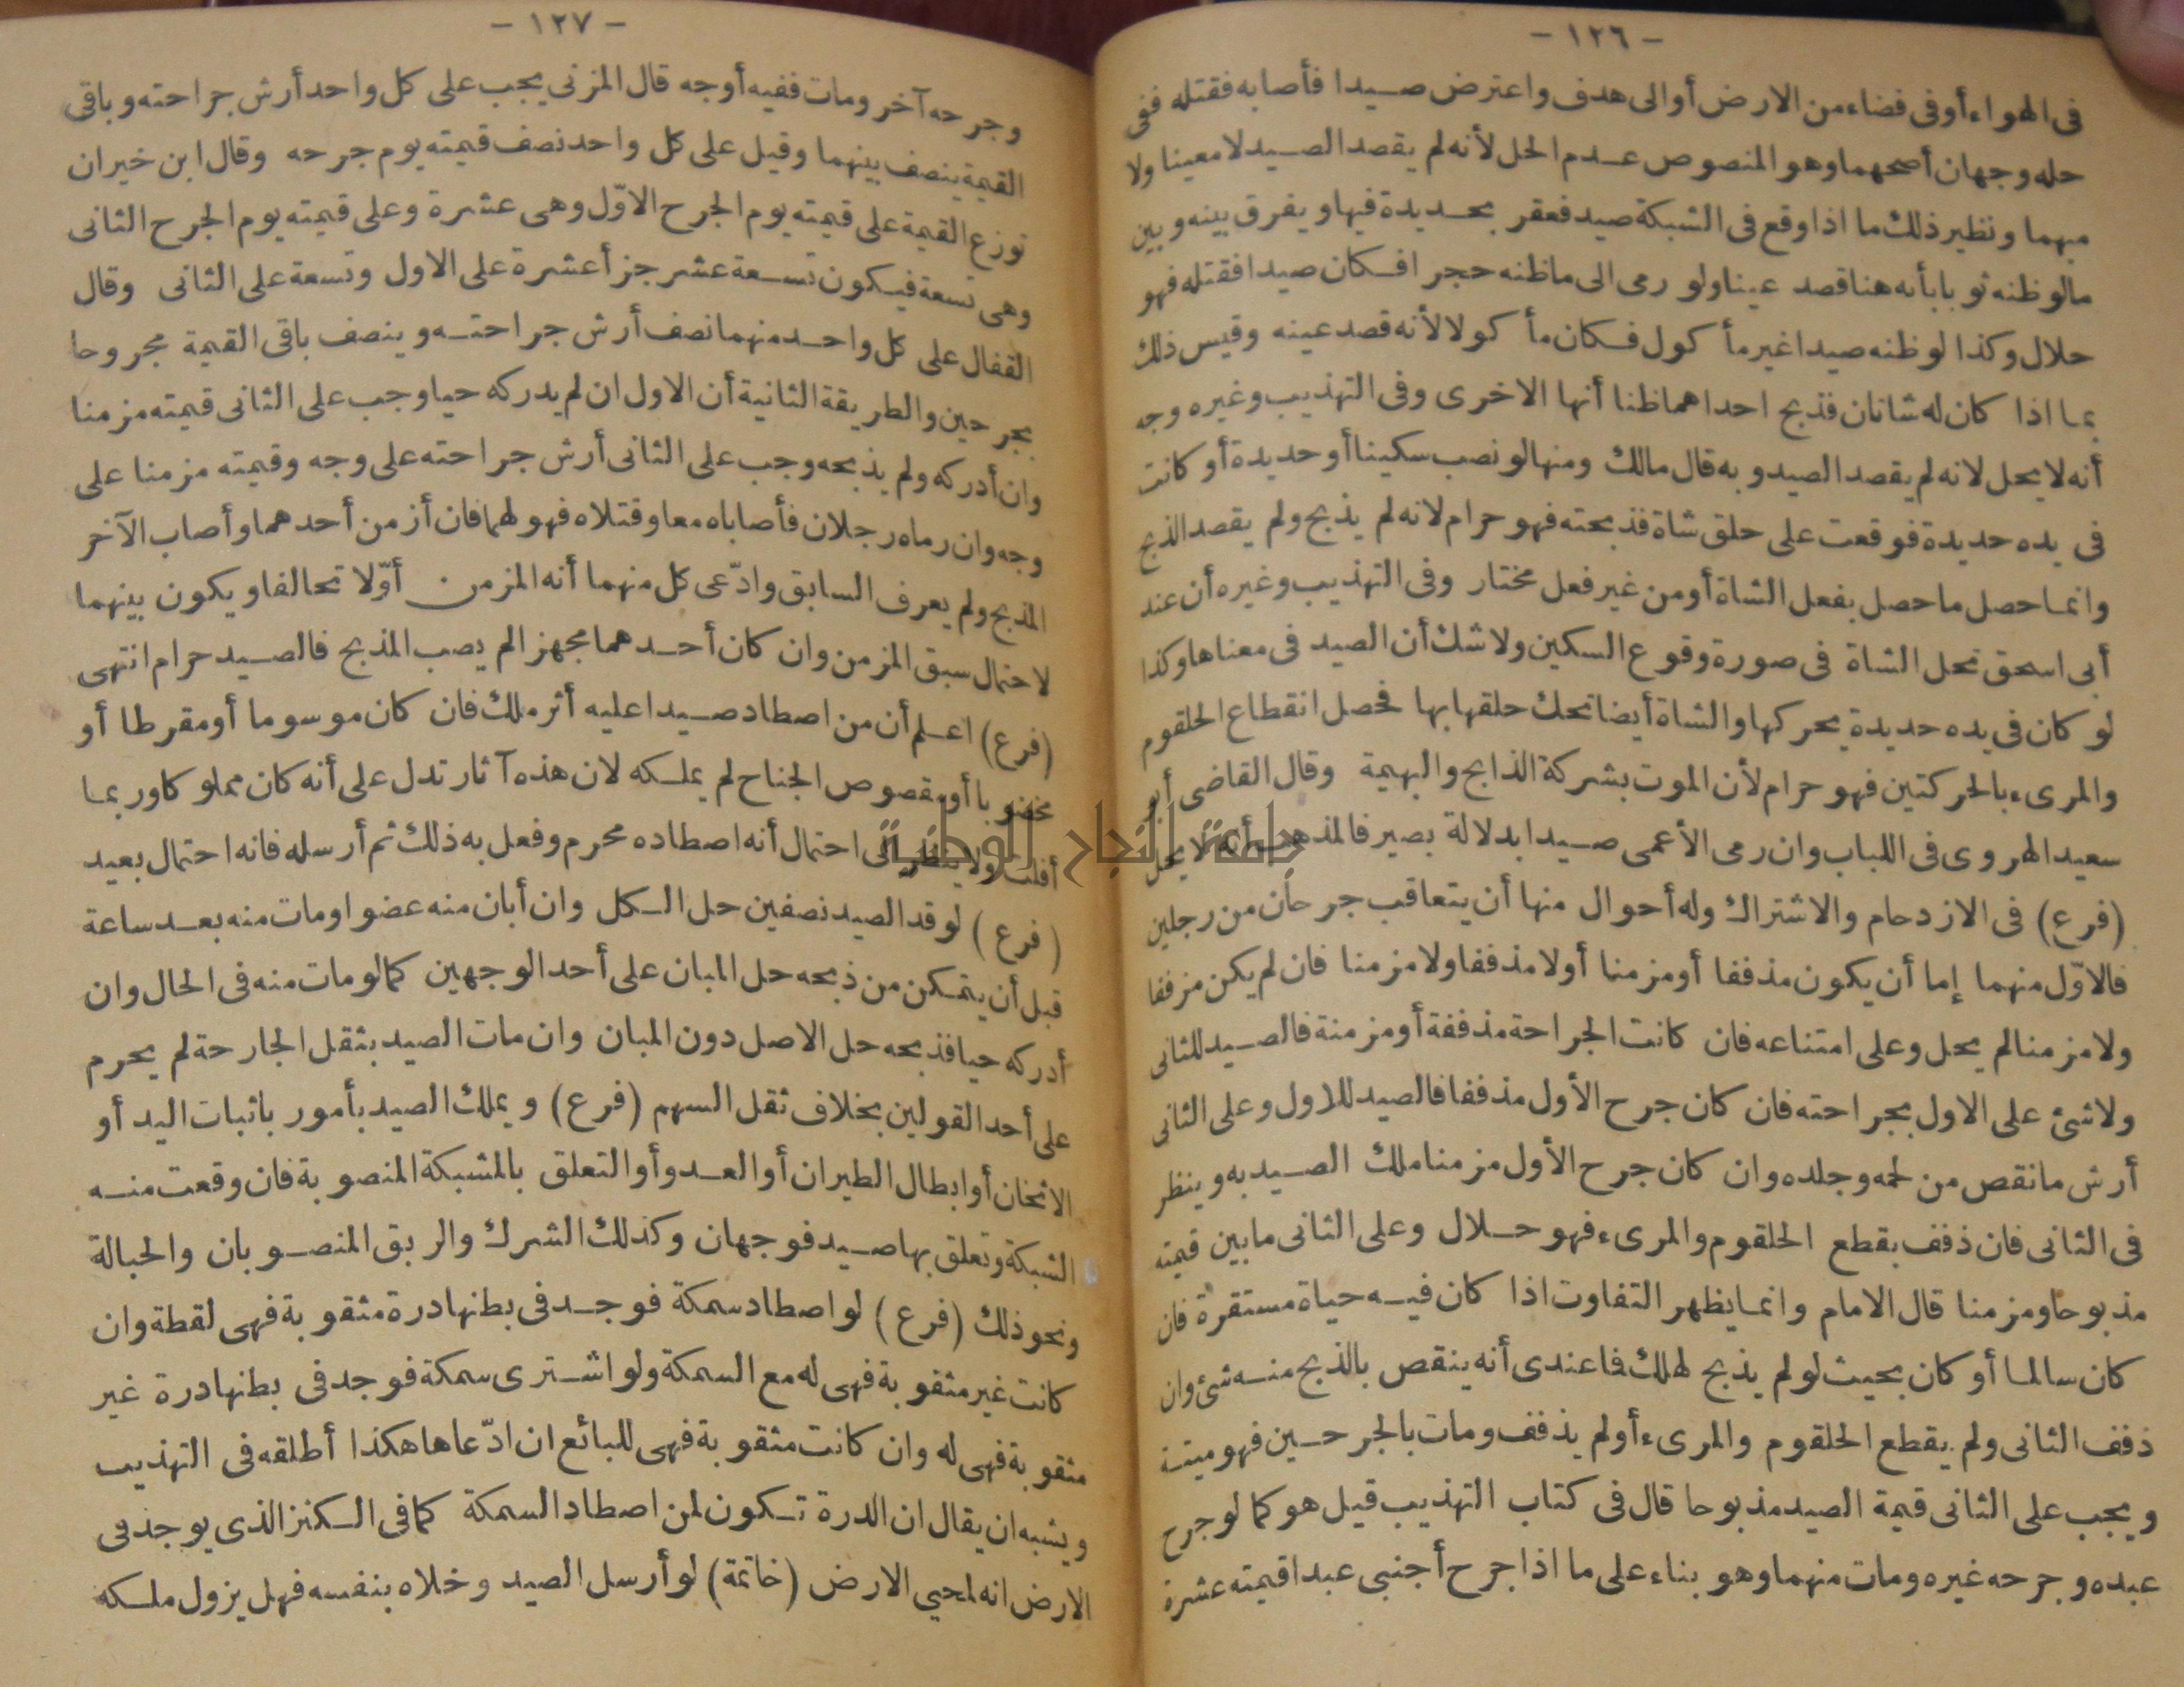 - ١٢٦ -
فى الهواء أوفى فضاء من الارض أوالى هدف واعترض صيدا فأصابه فقتله ففى
حله وجهان أصحهما وهو المنصوص عدم الحل لأنه لم يقصد الصيد لا معينا ولا
مبهما ونظير ذلك ما اذا وقع فى الشبكة صيد فعقر بحديدة فيها ويفرق بينه وبين
مالوظنه ثوبا بأنه هنا قصد عينا ولو رمى الى ماظنه حجرا فكان صيدا فقتله فهو
حلال وكذا لوظنه صيدا غير مأكول فكان مأكولا لأنه قصد عينه وقيس ذلك
بما اذا كان له شاتان فذبح احداهما ظنا أنها الاخرى وفى التهذيب وغيره وجه
أنه لا يحل لانه لم يقصد الصيد وبه قال مالك ومنها لو نصب سكينا أو حديدة أو كانت
فى يده حديدة فوقعت على حلق شاة فذبحته فهو حرام لانه لم يذبح ولم يقصد الذبح
وانما حصل ما حصل بفعل الشاة أو من غير فعل مختار وفى التهذيب وغيره أن عند
أبى اسحق تحل الشاة فى صورة وقوع السكين ولا شك أن الصيد فى معناها وكذا
لو كان فى يده حديدة يحركها والشاة أيضا تحك حلقها بها فحصل انقطاع الحلقوم
والمرىء بالحركتين فهو حرام لأن الموت بشركة الذابح والبهيمة وقال القاضى أبو
سعيد الهروى فى اللباب وان رمى الأعمى صيدا بدلالة بصير فالمذهب أنه لا يحل
(فرع) فى الازدحام والاشتراك وله أحوال منها أن يتعاقب جرحان من رجلين
فالاوّل منهما إما أن يكون مذففا أو مزمنا أولا مذففا ولا مزمنا فان لم يكن مزففا
ولا مزمنا لم يحل وعلى امتناعه فان كانت الجراحة مذففة أو مزمنة فالصيد للثانى
ولا شئ على الاول بجراحته فان كان جرح الأول مذففا فالصيد للاول وعلى الثانى
أرش ما نقص من لحمه وجلده وان كان جرح الأول مزمنا ملك الصيد به وينظر
فى الثانى فان ذفف بقطع الحلقوم والمرىء فهو حلال وعلى الثانى ما بين قيمته
مذبوحا ومزمنا قال الامام وانما يظهر التفاوت اذا كان فيه حياة مستقرة فان
كان سالما أو كان بحيث لو لم يذبح لهلك فاعندى أنه ينقص بالذبح منه شئ وان
ذفف الثانى ولم يقطع الحلقوم والمرىء أو لم يذفف ومات بالجرحين فهو ميتة
ويجب على الثانى قيمة الصيد مذبوحا قال فى كتاب التهذيب قيل هو كما لو جرح
عبده وجرحه غيره ومات منهما وهو بناء على ما اذا جرح أجنبى عبدا قيمته عشرة
- ١٢٧ -
وجرحه آخر ومات ففيه أوجه قال المزنى يجب على كل واحد أرش جراحته وباقى
القيمة ينصف بينهما وقيل على كل واحد نصف قيمته يوم جرحه وقال ابن خيران
توزع القيمة على قيمته يوم الجرح الاوّل وهى عشرة وعلى قيمته يوم الجرح الثانى
وهى تسعة فيكون تسعة عشر جزأ عشرة على الاول وتسعة على الثانى وقال
القفال على كل واحد منهما نصف أرش جراحته وينصف باقى القيمة مجروحا
بجرحين والطريقة الثانية أن الاول ان لم يدركه حيا وجب على الثانى قيمته مزمنا
وان أدركه ولم يذبحه وجب على الثانى أرش جراحته على وجه وقيمته مزمنا على
وجه وان رماه رجلان فأصاباه معا وقتلاه فهو لهما فان أزمن أحدهما وأصاب الآخر
المذبح ولم يعرف السابق وادّعى كل منهما أنه المزمن أوّلا تحالفا ويكون بينهما
لاحتمال سبق المزمن وان كان أحدهما مجهزا لم يصب المذبح فالصيد حرام انتهى
(فرع) اعلم أن من اصطاد صيدا عليه أثر ملك فان كان موسوما أو مقرطا أو
مخضوبا أو مقصوص الجناح لم يملكه لان هذه آثار تدل على أنه كان مملوكا وربما
أفلت ولا ينظر الى احتمال أنه اصطاده محرم وفعل به ذلك ثم أرسله فانه احتمال بعيد
جامعة النجاح الوطنية
(فرع) لو قد الصيد نصفين حل الكل وان أبان منه عضوا ومات منه بعد ساعة
قبل أن يتمكن من ذبحه حل المبان على أحد الوجهين كما لو مات منه فى الحال وان
أدركه حيا فذبحه حل الاصل دون المبان وان مات الصيد بثقل الجارحة لم يحرم
على أحد القولين بخلاف ثقل السهم (فرع) ويملك الصيد بأمور باثبات اليد أو
الاثخان أو ابطال الطيران أو العدو أو التعلق بالشبكة المنصوبة فان وقعت منه
الشبكة وتعلق بها صيد فوجهان وكذلك الشرك والربق المنصوبان والحبالة
ونحو ذلك (فرع) لو اصطاد سمكة فوجد فى بطنها درة مثقوبة فهى لقطة وان
كانت غير مثقوبة فهى له مع السمكة ولو اشترى سمكة فوجد فى بطنها درة غير
مثقوبة فهى له وان كانت مثقوبة فهى للبائع ان ادّعاها هكذا أطلقه فى التهذيب
ويشبه ان يقال ان الدرة تكون لمن اصطاد السمكة كما فى الكنز الذى يوجد فى
الارض انه لمحيي الارض (خاتمة) لو أرسل الصيد وخلاه بنفسه فهل يزول ملكه